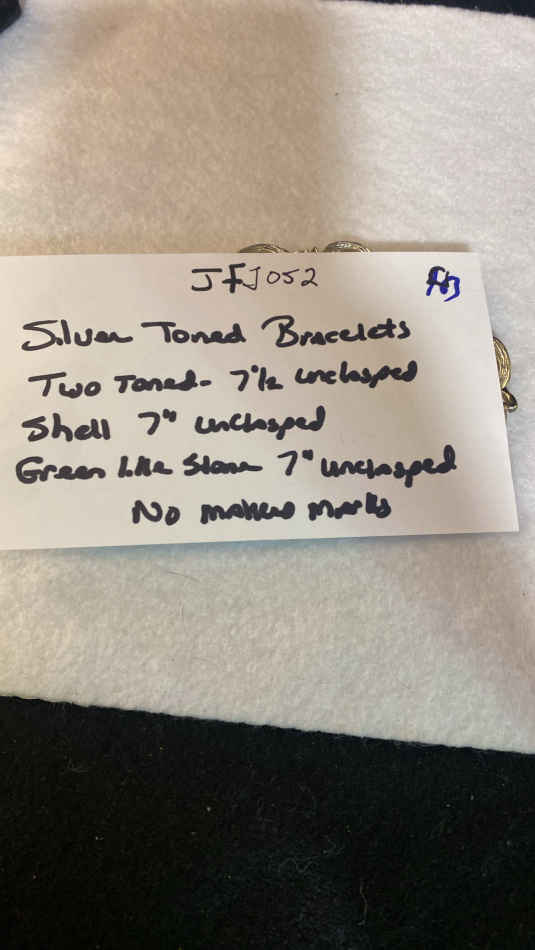 JFJ052
Silver Toned Bracelets
Two Toned- 7"1/2 unclasped
Shell 7" unclasped
Green like Stone 7" unclasped
No makers marks